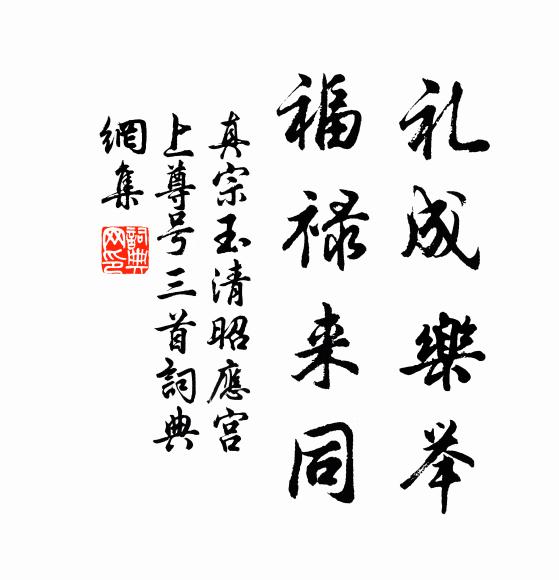 礼成樂举
福禄来同
真宗玉清昭應宫
上尊号三首詞典
網集
詞典
网印